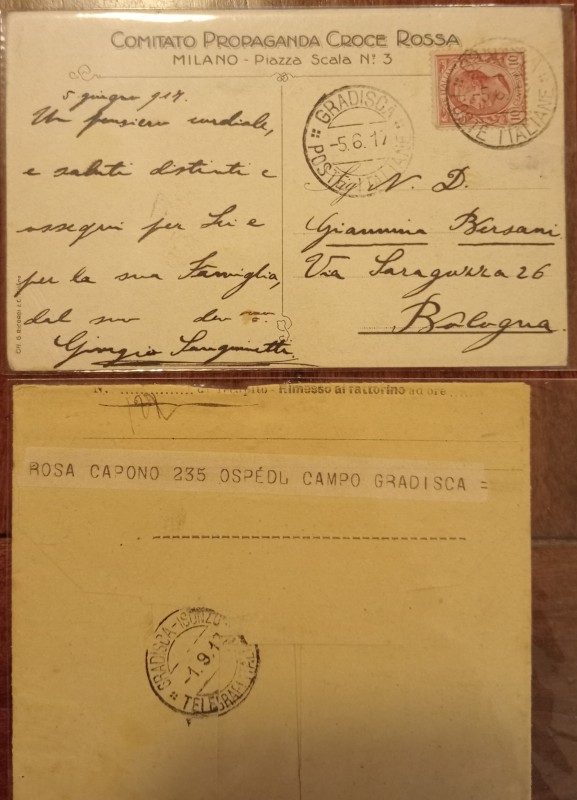 COMITATO PROPAGANDA CROCE ROSSA
MILANO - Piazza Scala N° 3
5 giugno 917.
Un pensiero cordiale,
e saluti distinti e
ossequi per Lei e
per la sua Famiglia,
dal suo dev
Giorgio Sanguinetti
GRADISCA
-5.6.17
POSTE ITALIANE
POSTE ITALIANE
10 10
N. D.
Giannina Bersani
Via Saragozza 26
Bologna.
N. Rimesso al fattorino ad ore
ROSA CAPONO 235 OSPÉDL CAMPO GRADISCA =
GRADISCA-ISONZO
-1.9.17